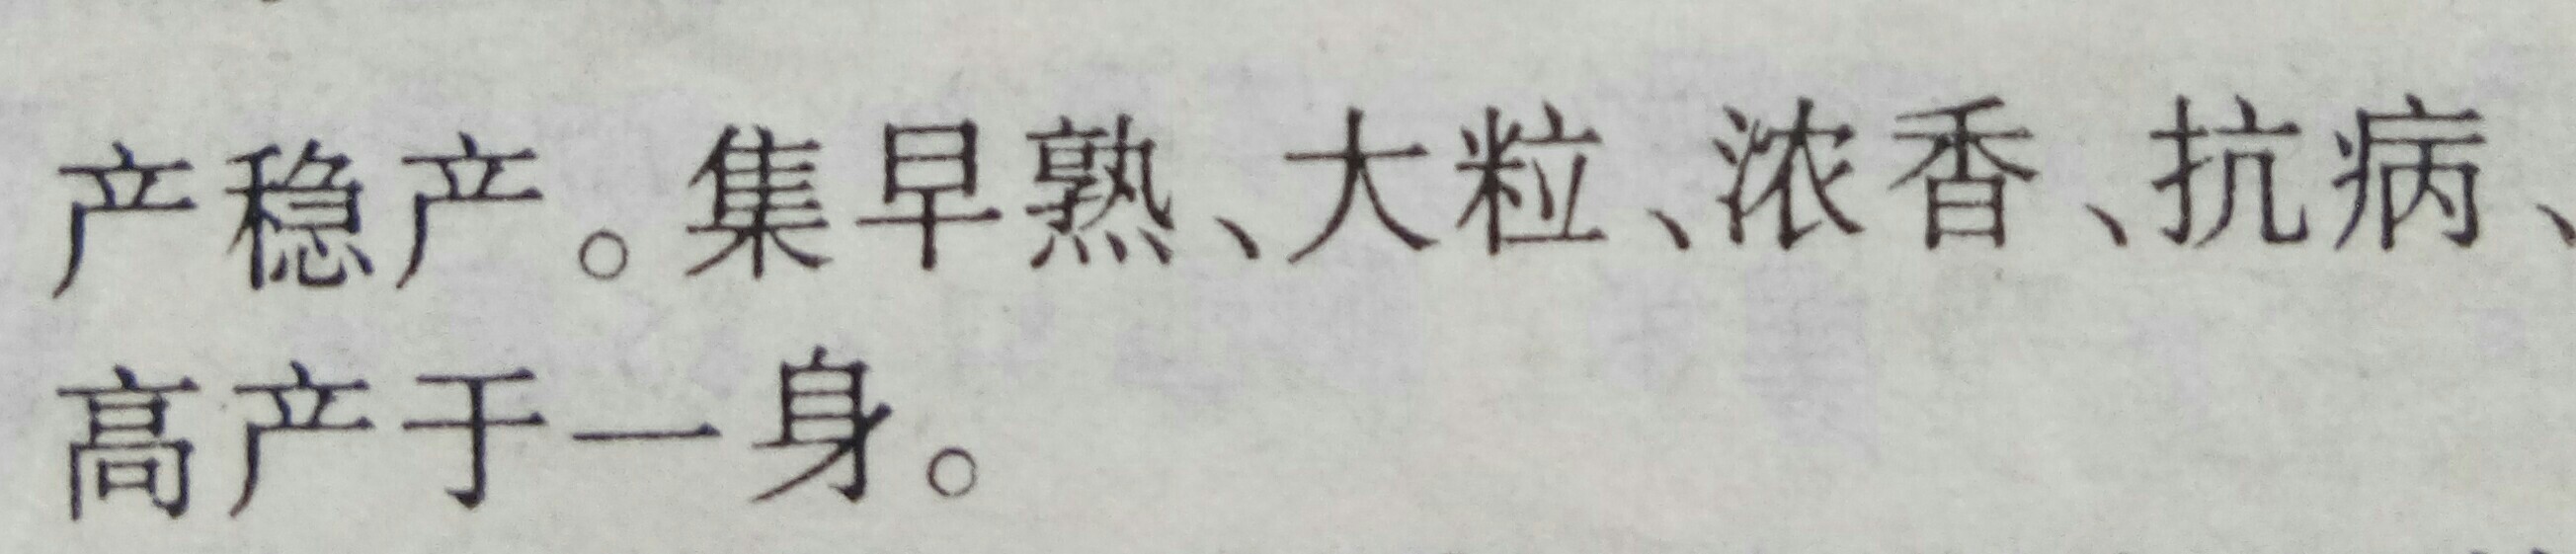 产稳产。集早熟、大粒、浓香、抗病、
高产于一身。